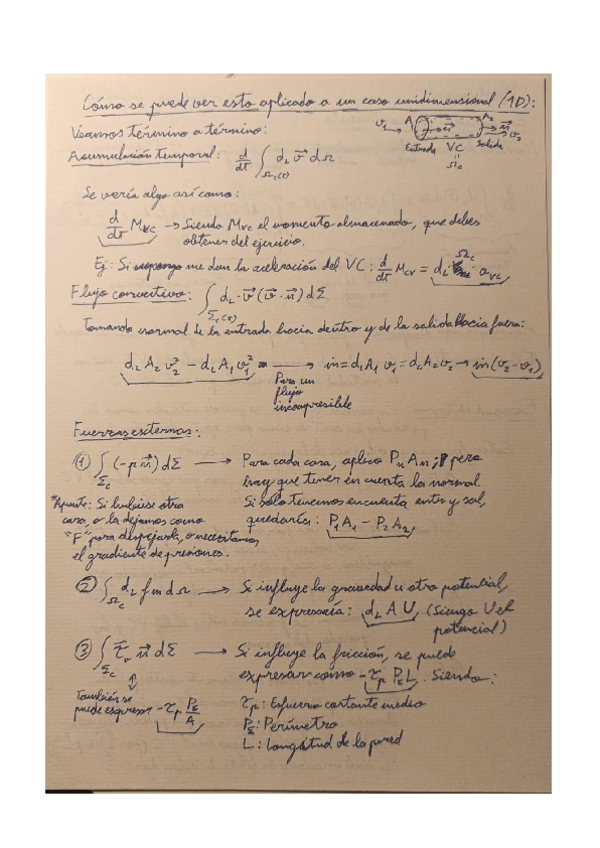 Cómo se puede ver esto aplicado a un caso unidimensional (1D):
Veamos término a término:
v₁ A₁ n⃗ A₂ n⃗ v₂
Entrada VC Salida
Ω꜀
Acumulación temporal: d/dt ∫_Ω꜀(t) d_L v⃗ dΩ
Se vería algo así como:
d/dt M_VC → Siendo M_VC el momento almacenado, que debes
obtener del ejercicio.
Ej: Si me dan la aceleración del VC: d/dt M_CV = d_L Ω꜀ a_VC
Flujo convectivo: ∫_Σ꜀(t) d_L · v⃗ (v⃗ · n⃗) dΣ
Tomando normal de la entrada hacia dentro y de la salida hacia fuera:
d_L A₂ v₂² − d_L A₁ v₁² → ṁ = d_L A₁ v₁ = d_L A₂ v₂ → ṁ(v₂ − v₁)
Para un
flujo
incompresible
Fuerzas externas:
① ∫_Σ꜀ (−p n⃗) dΣ → Para cada casa, aplico Pₙ Aₙ; pero
hay que tener en cuenta la normal.
Si solo tenemos en cuenta entr y sal,
quedaría: P₁A₁ − P₂A₂
*Apunte: Si hubiese otra
casa, o la dejamos como
"F" para despejarla, o necesitamos
el gradiente de presiones.
② ∫_Ω꜀ d_L f_m dΩ → Si influye la gravedad u otro potencial,
se expresaría: d_L A U, (Siendo U el
potencial)
③ ∫_Σ꜀ τ̿ᵥ n⃗ dΣ → Si influye la fricción, se puede
expresar como −τₚ P_Σ L. Siendo:
También se
puede expresar −τₚ P_Σ/A
τₚ: Esfuerzo cortante medio
P_Σ: Perímetro
L: Longitud de la pared